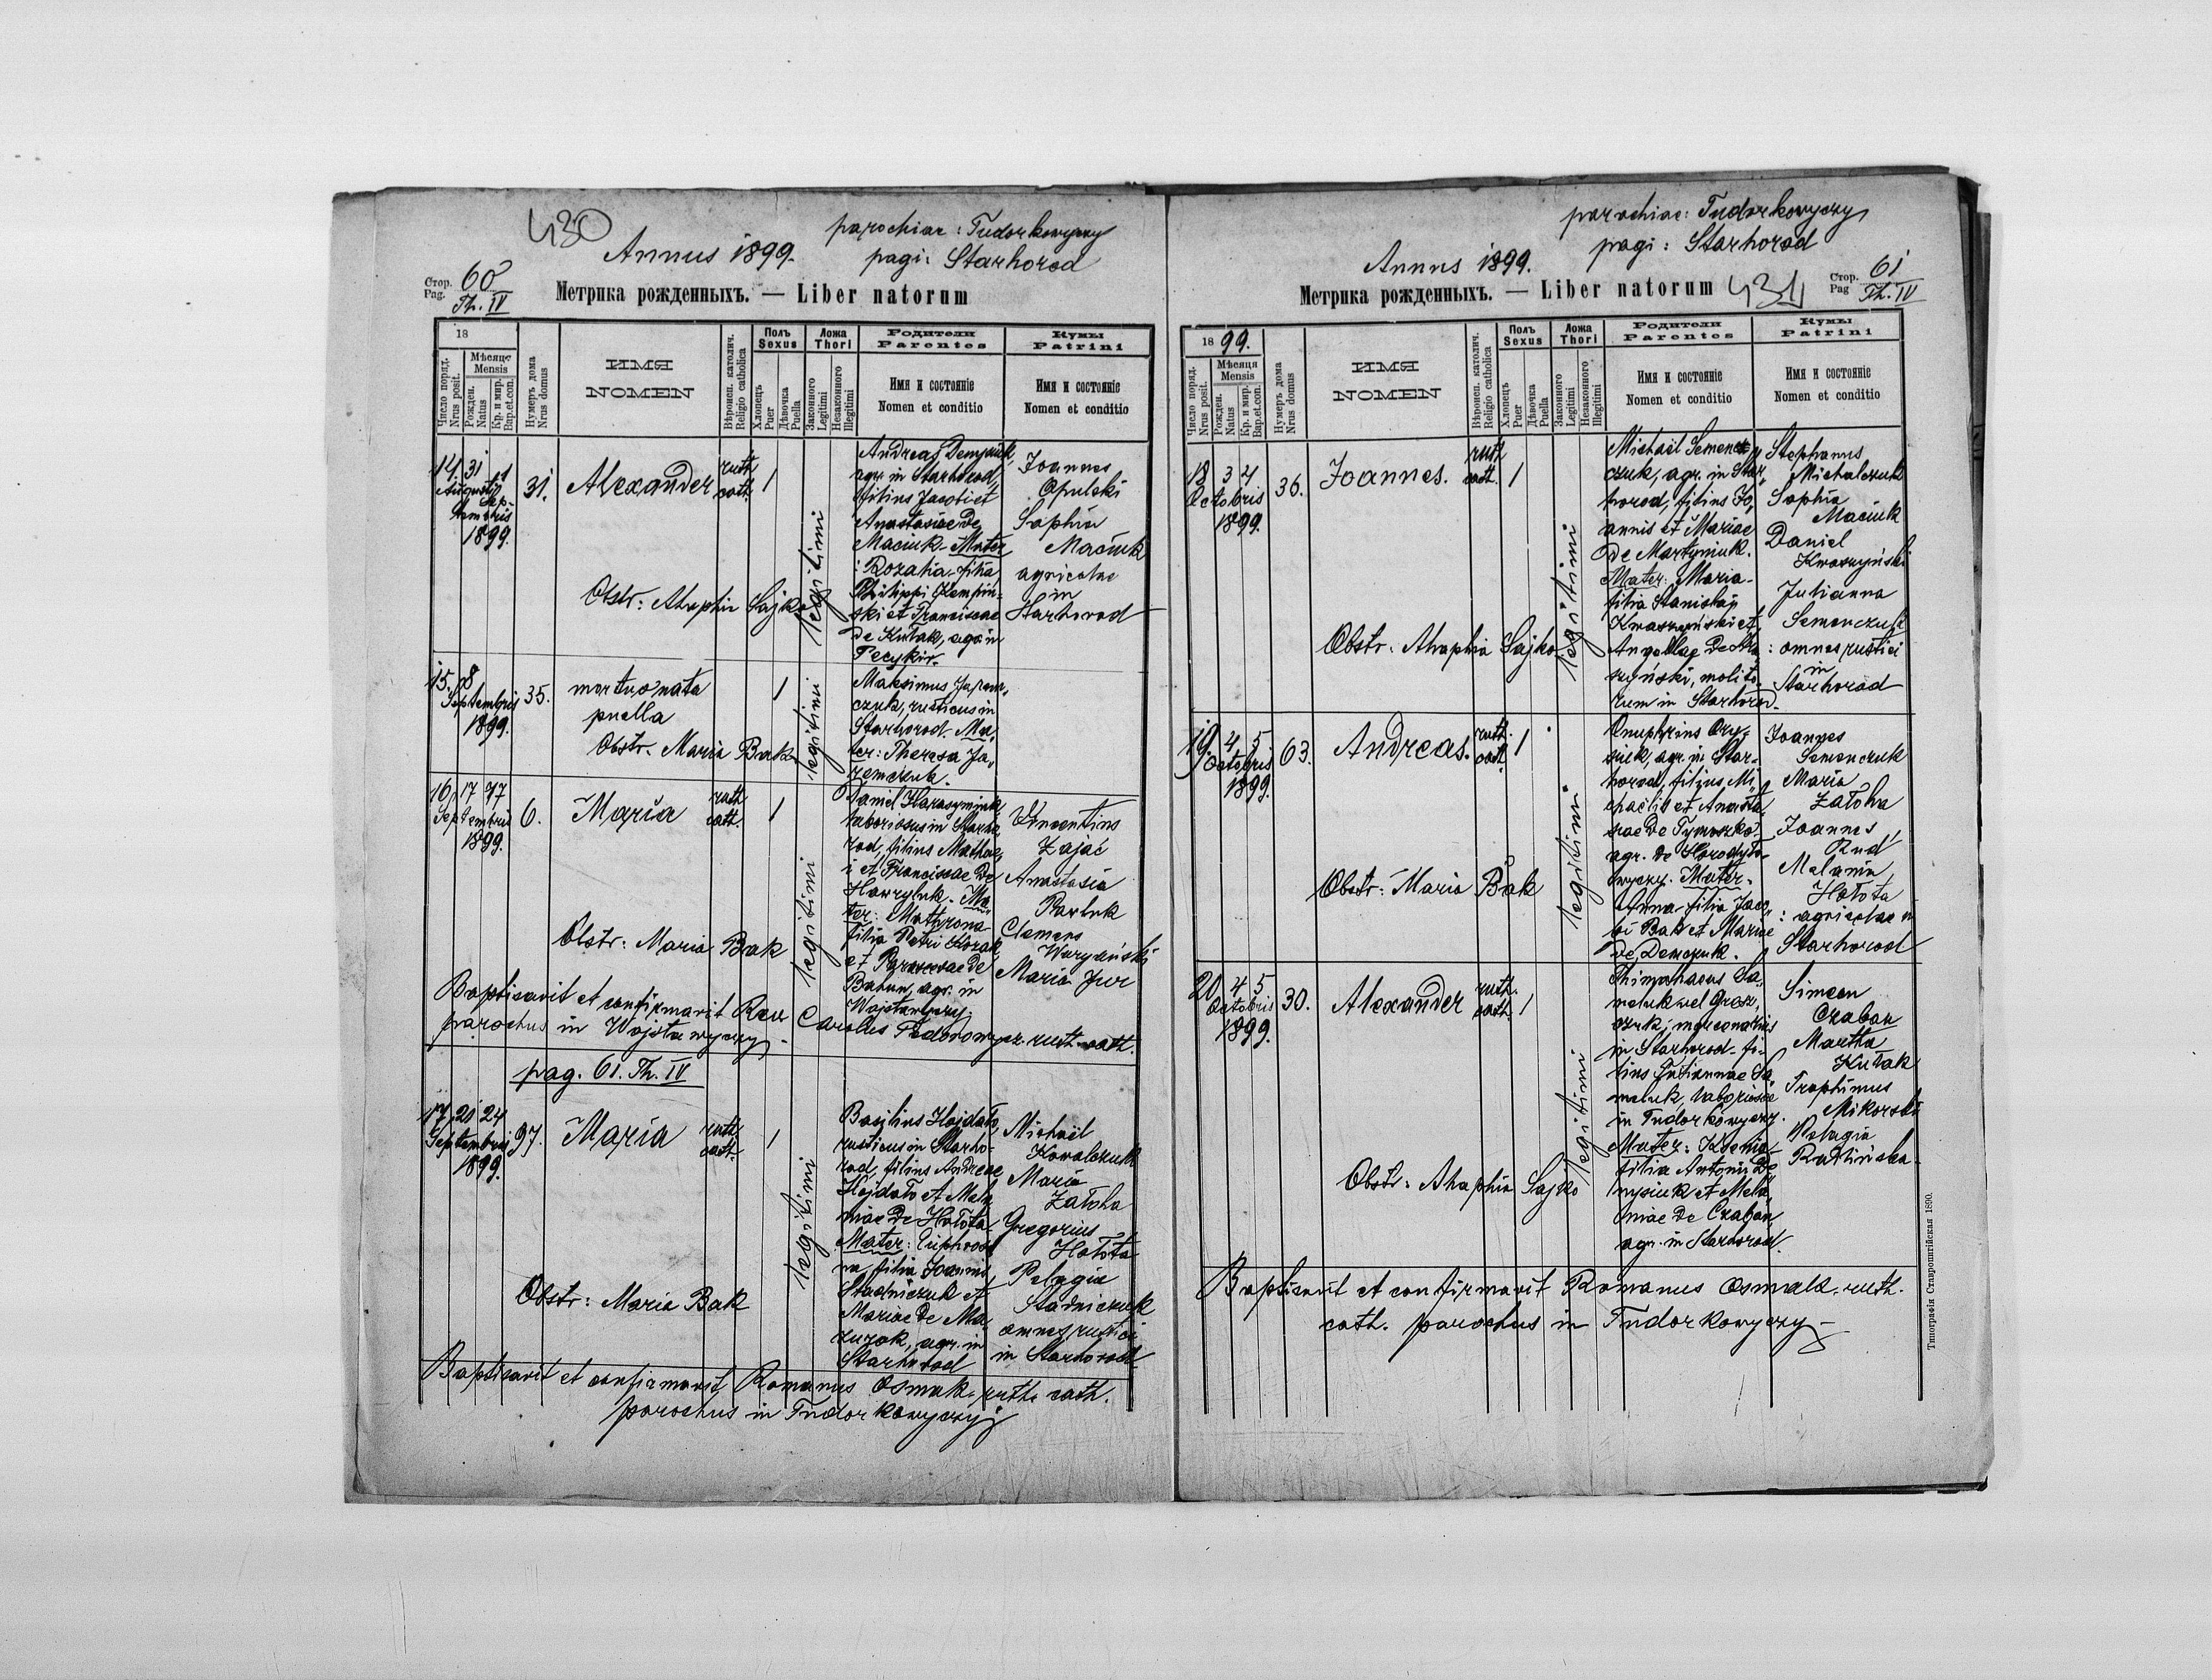 430
parochiae: Tudorkowyczy
Annus 1899.
pagi: Starhorod
Стор. Pag. 60 Th. IV
Метрика рожденныхъ. — Liber natorum
18
Число поряд. Nrus posit.
Мѣсяце Mensis
Рожден. Natus
Кр. и мир. Bap.et.con.
Нумеръ дома Nrus domus
ИМЯ
NOMEN
Вѣроисп. католич. Religio catholica
Полъ Sexus
Хлопецъ Puer
Дѣвочка Puella
Ложа Thori
Законного Legitimi
Незаконного Illegitimi
Родители
Parentes
Имя и состояніе
Nomen et conditio
Кумы
Patrini
Имя и состояніе
Nomen et conditio
14. 31 1
Augusti Sep-
tembris
1899.
31.
Alexander
ruth.
cath.
1
legitimi
Andreas Demczuk,
agr. in Starhorod,
filius Jacobi et
Anastasiae de
Maciuk - Mater
: Rozalia - filia
Philippi Kempin-
ski et Franciscae
de Kułak, agr. in
Joannes
Opulski
Sophia
Maciuk
agricolae
in
Starhorod
Obstr: Ahaphia Sajko
15. 8
Septembris
1899.
35.
mortuo nata
puella
1
legitimi
Maksimus Jarem-
czuk, rusticus in
Starhorod - Ma-
ter: Theresa Ja-
remczuk.
Obstr. Maria Bak
16. 17 17
Septembris
1899.
6.
Maria
ruth.
cath.
1
legitimi
Daniel Harasymiuk
laboriosus in Starho-
rod, filius Mathae-
i et Franciscae de
Hawryluk. Ma-
ter: Matrona
filia Petri Kozak
et Parascevae de
Babun, agr. in
Wojsławyczy.
Vincentius
Zając
Anastasia
Pawluk
Clemens
Maria Jur
Obstr: Maria Bak
Baptisavit et confirmavit Rev. Carolus Teodorowycz. ruth. cath.
parochus in Wojsławyczy -
pag. 61. Th. IV
17. 20 24
Septembris
1899.
97.
Maria
ruth.
cath.
1
legitimi
Basilius Hojdało,
rusticus in Starho-
rod, filius Andreae
Hojdało et Mela-
niae de Hołota.
Mater: Euphrosi-
na, filia Joannis
Stadniczuk et
Mariae de Ma-
zurok, agr. in
Starhorod
Michaël
Kowalczuk
Maria
Załoha
Gregorius
Hołota
Pelagia
Stadniczuk
omnes rustici
in Starhorod
Obstr: Maria Bak
Baptisavit et confirmavit Romanus Osmak. ruth. cath.
parochus in Tudorkowyczy
parochiae: Tudorkowyczy
pagi: Starhorod
Annus 1899.
Метрика рожденныхъ. — Liber natorum
431
Стор. Pag 61 Th. IV
1899.
Число поряд. Nrus posit.
Мѣсяця Mensis
Рожден. Natus
Кр. и мир. Bap.et.con.
Нумеръ дома Nrus domus
ИМЯ
NOMEN
Вѣроисп. католич. Religio catholica
Полъ Sexus
Хлопецъ Puer
Дѣвочка Puella
Ложа Thori
Законного Legitimi
Незаконного Illegitimi
Родители
Parentes
Имя и состояніе
Nomen et conditio
Кумы
Patrini
Имя и состояніе
Nomen et conditio
18 3 4
Octobris
1899.
36.
Joannes.
ruth.
cath.
1
legitimi
Michaël Semen-
czuk, agr. in Star-
horod, filius Jo-
annis et Mariae
de Martyniuk.
Mater: Maria -
filia Stanislai
Kwaszyński et
Angellae de
szyński, molito-
rum in Starhorod.
Stephanus
Michalczuk
Sophia
Maciuk
Daniel
Kwaszyński
Julianna
Semenczuk
: omnes rustici
in
Starhorod
Obstr. Ahaphia Sajko
19. 4 5
Octobris
1899.
63.
Andreas.
ruth.
cath.
1
legitimi
Onuphrius Ory-
siuk, agr. in Star-
horod, filius Mi-
chaëlis et Anasta-
siae de Tymoszko -
agr. de Horodyło-
wyczy. Mater -
Anna - filia Jaco-
bi Bak et Mariae
de Demczuk.
Joannes
Semenczuk
Maria
Załoha
Joannes
Rud
Melania
Hołota
: agricolae in
Starhorod
Obstr: Maria Bak
20. 4 5
Octobris
1899.
30.
Alexander
ruth.
cath.
1
legitimi
Thimothaeus Sa-
meluk vel
czuk, mercenarius
in Starhorod - fi-
lius Juliannae Sa-
meluk, laboriosae
in Tudorkowyczy.
Mater: Ksenia -
filia Antonii De-
mysiuk et Mela-
niae de Czaban,
agr. in Starhorod.
Simeon
Czaban
Martha
Kułak
Trophimus
Mikorski
Pelagia
Rutlińska
Obstr: Ahaphia Sajko
Baptisavit et confirmavit Romanus Osmak. ruth.
cath. parochus in Tudorkowyczy -
Типографія Ставропигійская 1890.